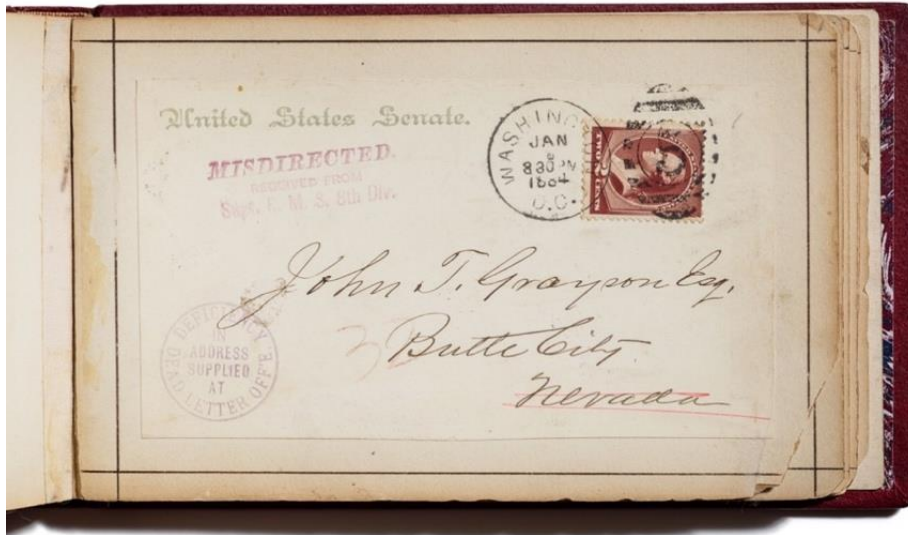 United States Senate.
MISDIRECTED.
RECEIVED FROM
Supt. R. M. S. 8th Div.
WASHING
JAN
830 PM
1884
D.C.
TWO CENTS
John T. Grayson Esq.
Butte City
Nevada
DEFICIENCY
IN
ADDRESS
SUPPLIED
AT
DEAD LETTER OFFICE